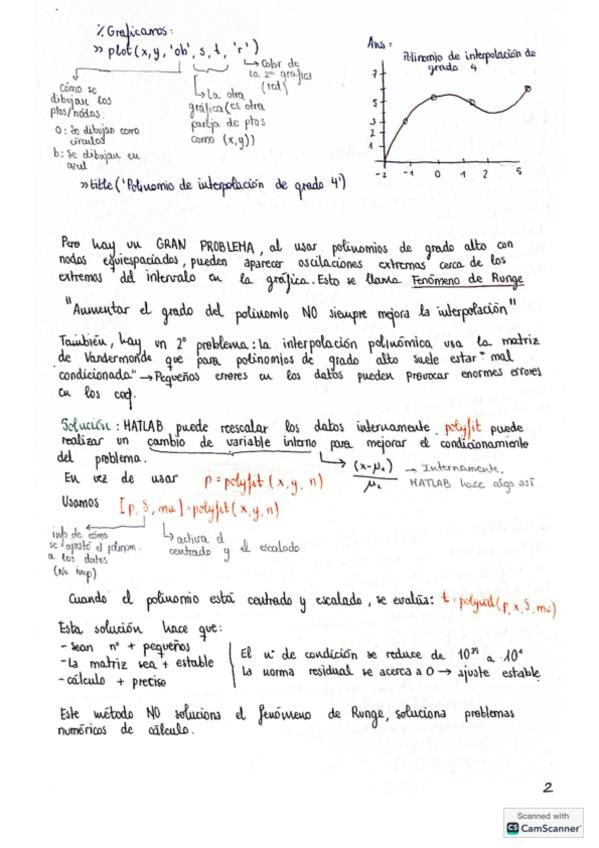 % Graficamos:
>> plot(x,y,'ob',s,t,'r')
Cómo se
dibujan los
ptos/nodos:
o: se dibujan como
círculos
b: se dibujan en
azul
La otra
gráfica (es otra
pareja de ptos
como (x,y))
Color de
la 2ª gráfica
(red)
>> title('Polinomio de interpolación de grado 4')
Ans:
Polinomio de interpolación de
grado 4
7
5
3
2
1
-2 -1 0 1 2 5
Pero hay un GRAN PROBLEMA, al usar polinomios de grado alto con
nodos equiespaciados, pueden aparecer oscilaciones extremas cerca de los
extremos del intervalo en la gráfica. Esto se llama Fenómeno de Runge
"Aumentar el grado del polinomio NO siempre mejora la interpolación"
También, hay un 2º problema: la interpolación polinómica usa la matriz
de Vandermonde que para polinomios de grado alto suele estar "mal
condicionada" → Pequeños errores en los datos pueden provocar enormes errores
en los coef.
Solución: MATLAB puede reescalar los datos internamente. polyfit puede
realizar un cambio de variable interno para mejorar el condicionamiento
del problema.
(x-μ₁)
μ₂
→ Internamente,
MATLAB hace algo así
En vez de usar p = polyfit(x,y,n)
Usamos [p,S,mu] = polyfit(x,y,n)
info de cómo
se ajustó el polinom.
a los datos
(No imp)
activa el
centrado y el escalado
Cuando el polinomio está centrado y escalado, se evalúa: t = polyval(p,x,S,mu)
Esta solución hace que:
- sean nº + pequeños
- La matriz sea + estable
- cálculo + preciso
El nº de condición se reduce de a
La norma residual se acerca a 0 → ajuste estable
Este método NO soluciona el fenómeno de Runge, soluciona problemas
numéricos de cálculo.
2
Scanned with
CS CamScanner